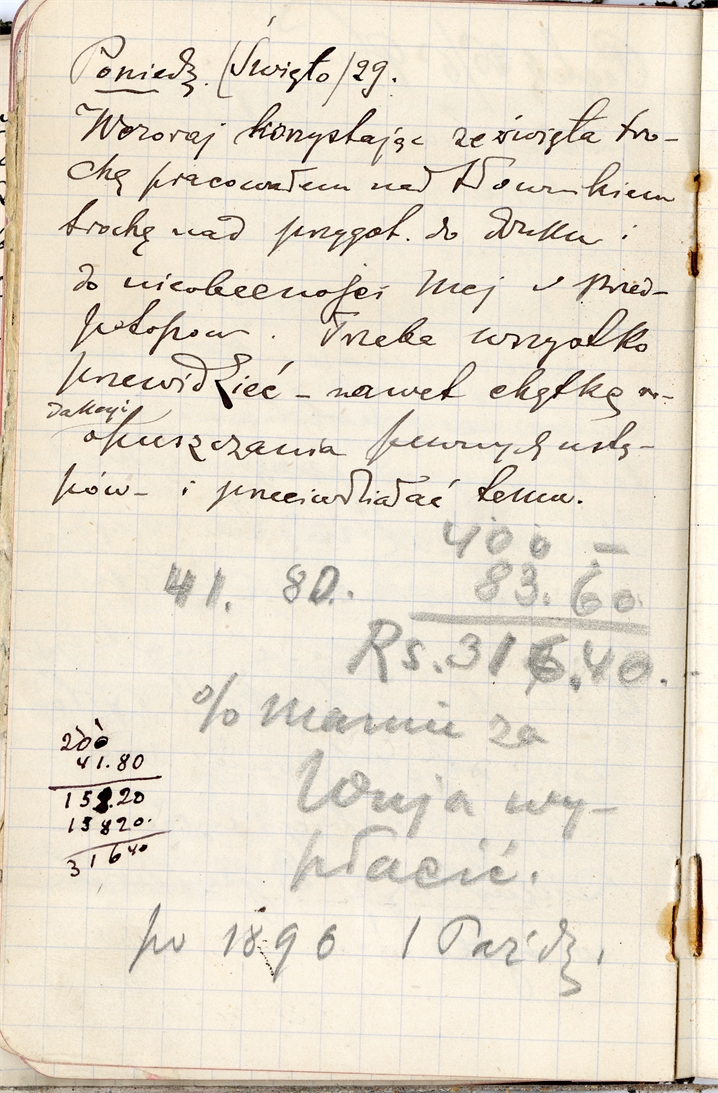 Poniedz. (Święto) 29.
Wczoraj korzystając ze święta tro-
chę pracowałem nad
trochę nad przygot. do druku i
do nieobecności mej w przed-
potopow. Trzeba wszystko
przewidzieć – nawet chętkę
do kogoś
opuszczania pewnych ustę-
pów – i przeciwdziałać temu.
400 –
41. 80. 83.60
Rs. 316.40.
% Mamie za
Wuja wy-
płacić.
200
41.80
158.20
158 20.
316 40
po 1896 1 Paźdz.